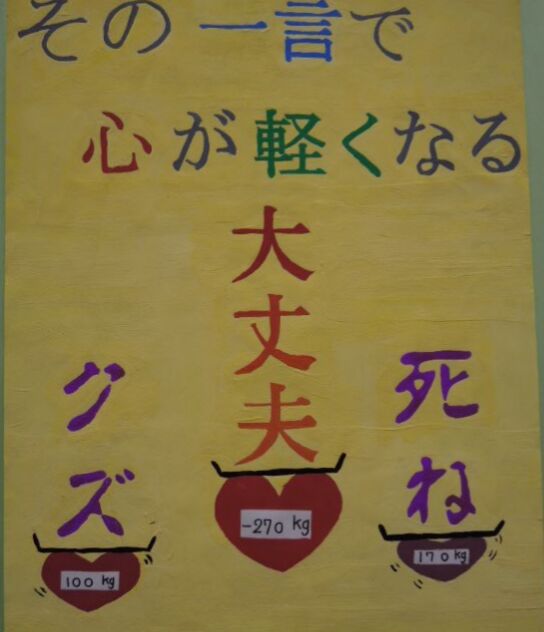 その一言で
心が軽くなる
大丈夫
クズ
死ね
-270 kg
100 kg
170 kg